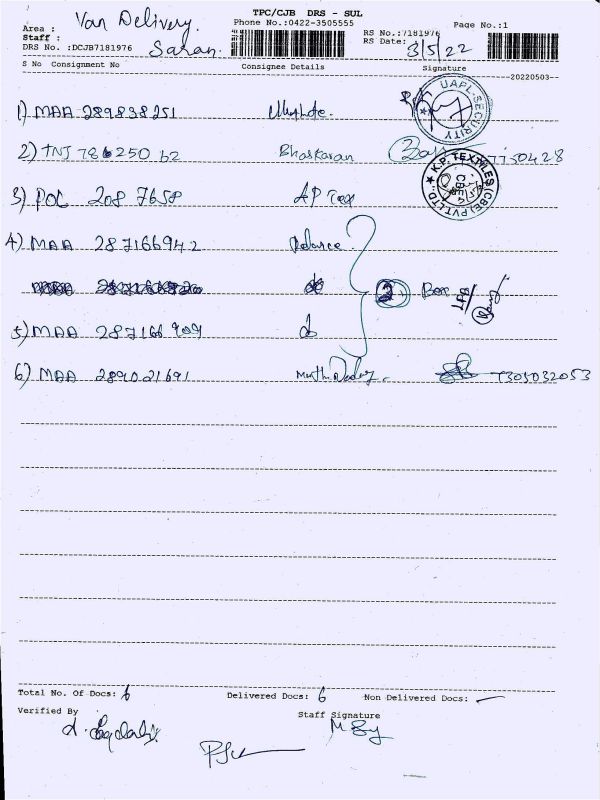 TPC/CJB DRS - SUL
Phone No.:0422-3505555
Page No.:1
Area : Van Delivery.
Staff : Saran
DRS No. :DCJB7181976
RS No.:7181976
RS Date: 3/5/22
S No Consignment No Consignee Details Signature
20220503
1) MAA 289838251
UAPL-SECURITY
2) TNJ 786250 62 Bhaskaran
K.P. TEXTILES (CBE) PVT.LTD.,
3) POC 208 7658 AP Tex
4) MAA 287166942 Reliance
2 Box
5) MAA 287166909
6) MAA 289021691 7305032053
Total No. Of Docs: 6 Delivered Docs: 6 Non Delivered Docs: -
Verified By Staff Signature